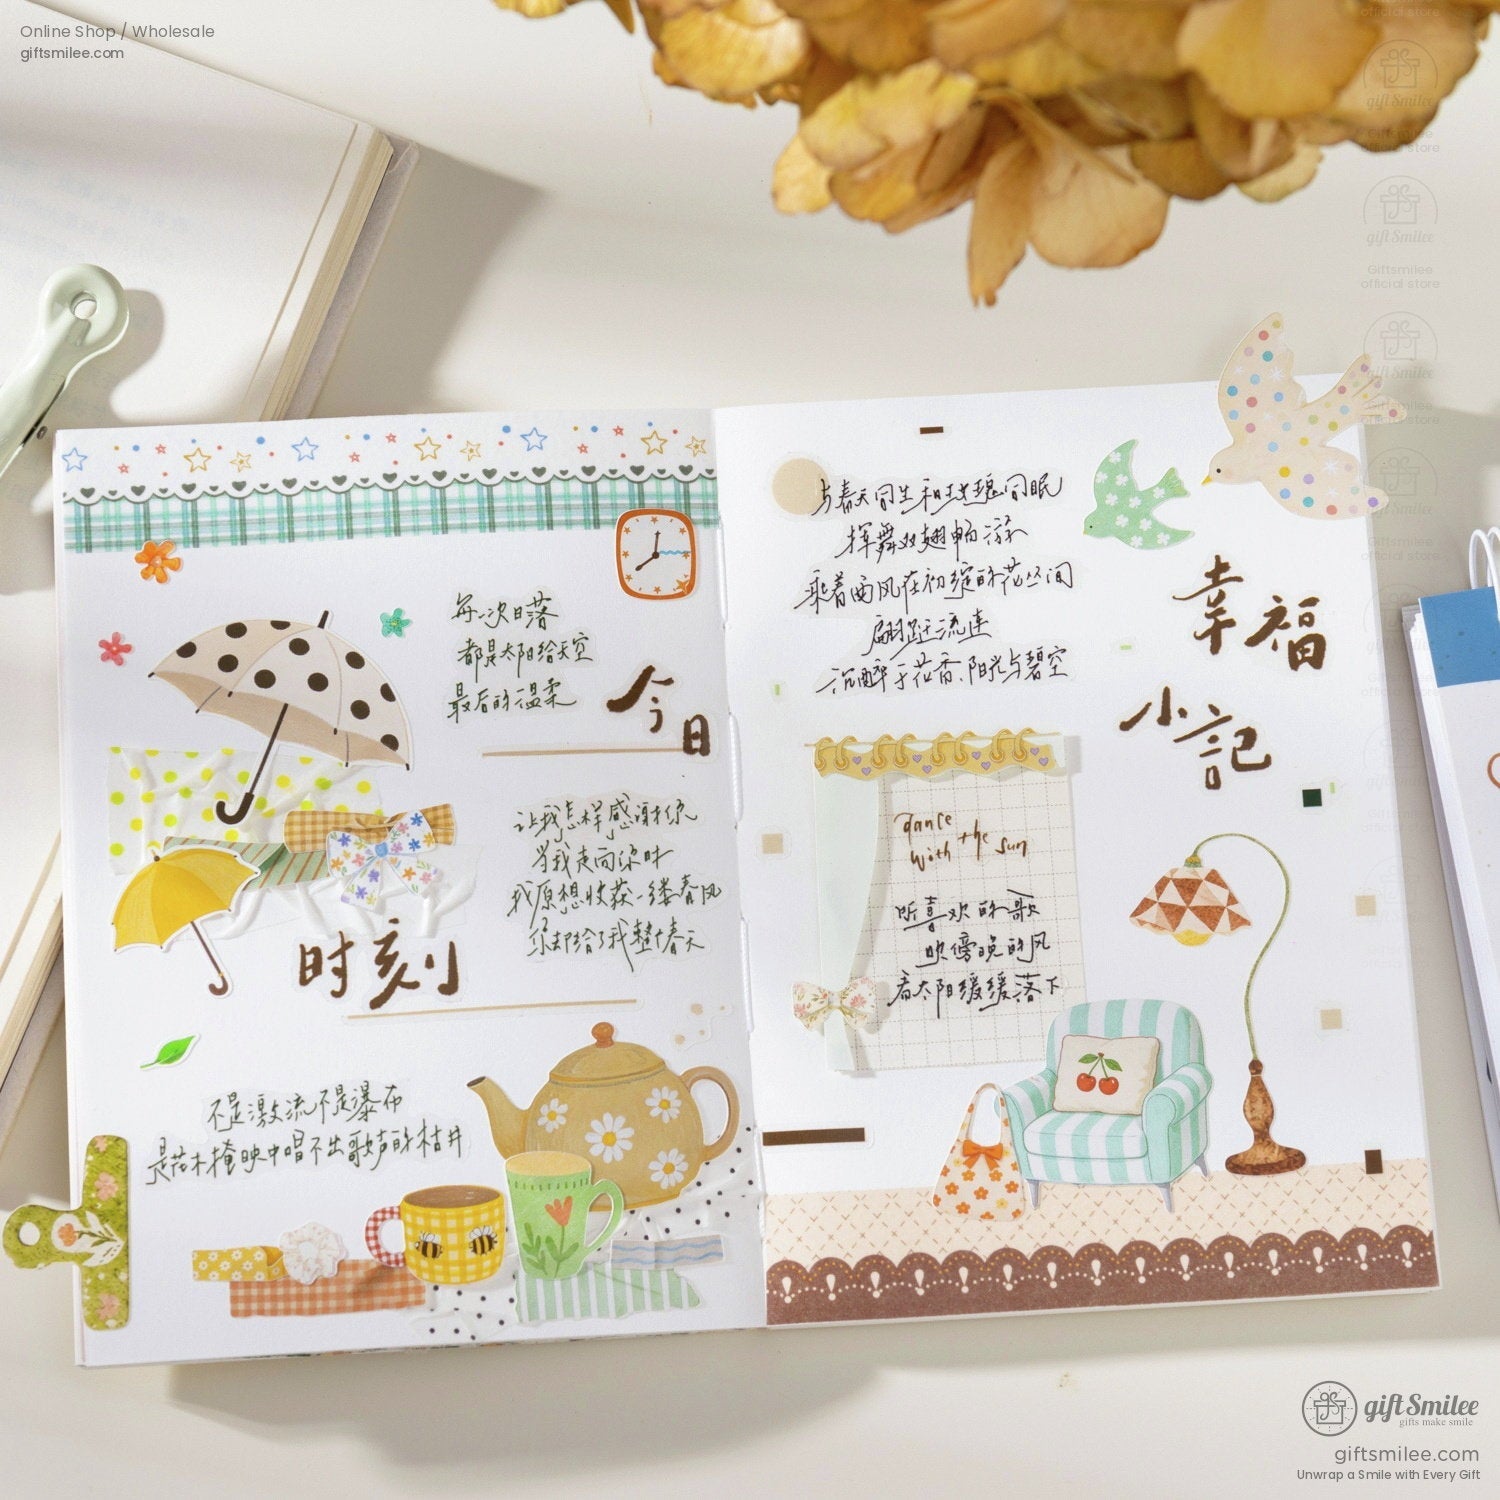 Online Shop / Wholesale
giftsmilee.com
每一次日落
都是太阳给天空
最后的温柔
今日
让我怎样感谢你
当我走向你时
我原想收获一缕春风
你却给了我整个春天
时刻
不是激流不是瀑布
是花木掩映中唱不出歌声的枯井
与春天同生和玫瑰同眠
挥舞双翅畅游
乘着西风在初绽的花丛间
翩跹流连
沉醉于花香、阳光与碧空
幸福
小記
dance
with the sun
听喜欢的歌
吹傍晚的风
看太阳缓缓落下
gift Smilee
Giftsmilee
official store
gift Smilee
Giftsmilee
official store
gift Smilee
gift Smilee
gifts make smile
giftsmilee.com
Unwrap a Smile with Every Gift